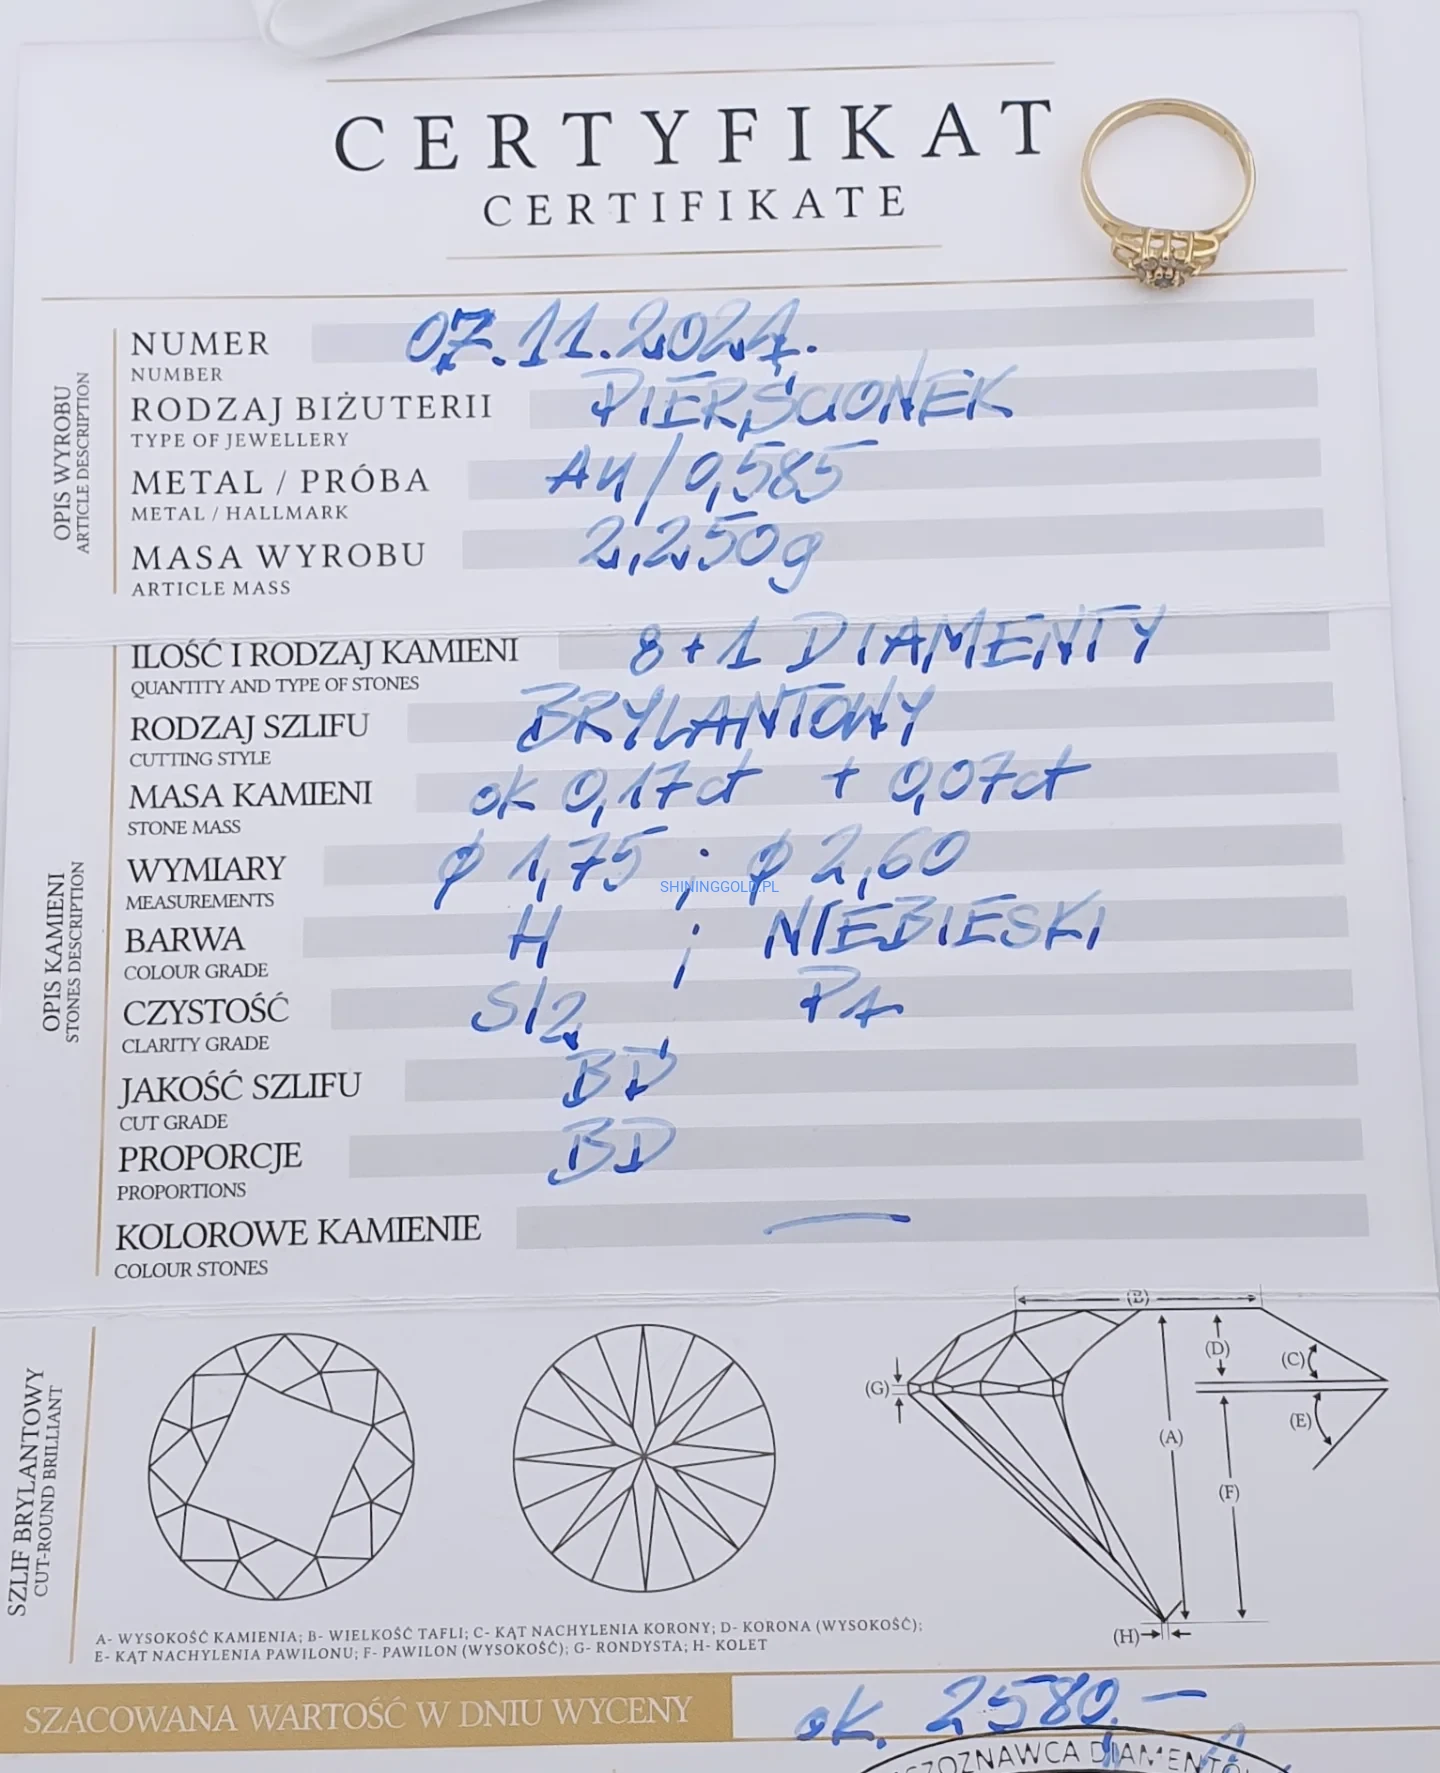 CERTYFIKAT
CERTIFIKATE
OPIS WYROBU
ARTICLE DESCRIPTION
NUMER 07.11.2024.
NUMBER
RODZAJ BIŻUTERII PIERŚCIONEK
TYPE OF JEWELLERY
METAL / PRÓBA Au/0,585
METAL / HALLMARK
MASA WYROBU 2,250g
ARTICLE MASS
OPIS KAMIENI
STONES DESCRIPTION
ILOŚĆ I RODZAJ KAMIENI 8+1 DIAMENTY
QUANTITY AND TYPE OF STONES
RODZAJ SZLIFU BRYLANTOWY
CUTTING STYLE
MASA KAMIENI ok 0,17ct + 0,07ct
STONE MASS
WYMIARY ϕ 1,75 ; ϕ 2,60
MEASUREMENTS
SHININGGOLD.PL
BARWA H ; NIEBIESKI
COLOUR GRADE
CZYSTOŚĆ SI2 P1
CLARITY GRADE
JAKOŚĆ SZLIFU BD
CUT GRADE
PROPORCJE BD
PROPORTIONS
KOLOROWE KAMIENIE —
COLOUR STONES
SZLIF BRYLANTOWY
CUT-ROUND BRILLIANT
(B)
(D)
(C)
(G)
(E)
(A)
(F)
(H)
A- WYSOKOŚĆ KAMIENIA; B- WIELKOŚĆ TAFLI; C- KĄT NACHYLENIA KORONY; D- KORONA (WYSOKOŚĆ);
E- KĄT NACHYLENIA PAWILONU; F- PAWILON (WYSOKOŚĆ); G- RONDYSTA; H- KOLET
SZACOWANA WARTOŚĆ W DNIU WYCENY ok. 2580.—